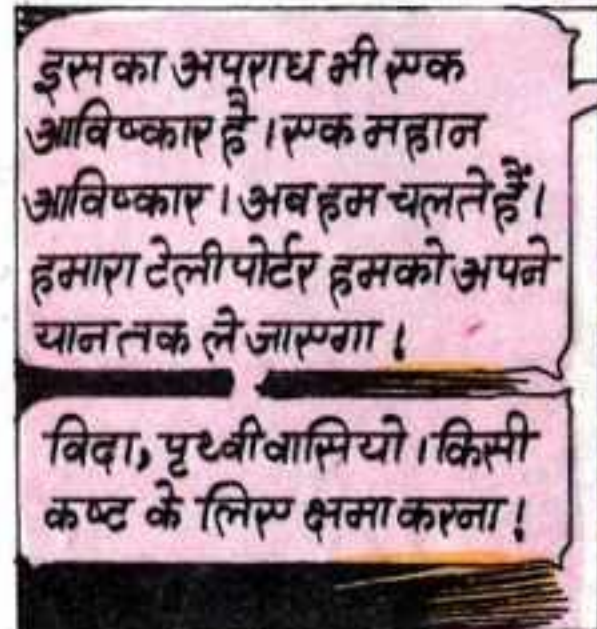 इसका अपराध भी एक
आविष्कार है। एक महान
आविष्कार। अब हम चलते हैं।
हमारा टेलीपोर्टर हमको अपने
यान तक ले जाएगा!
विदा, पृथ्वीवासियो। किसी
कष्ट के लिए क्षमा करना!